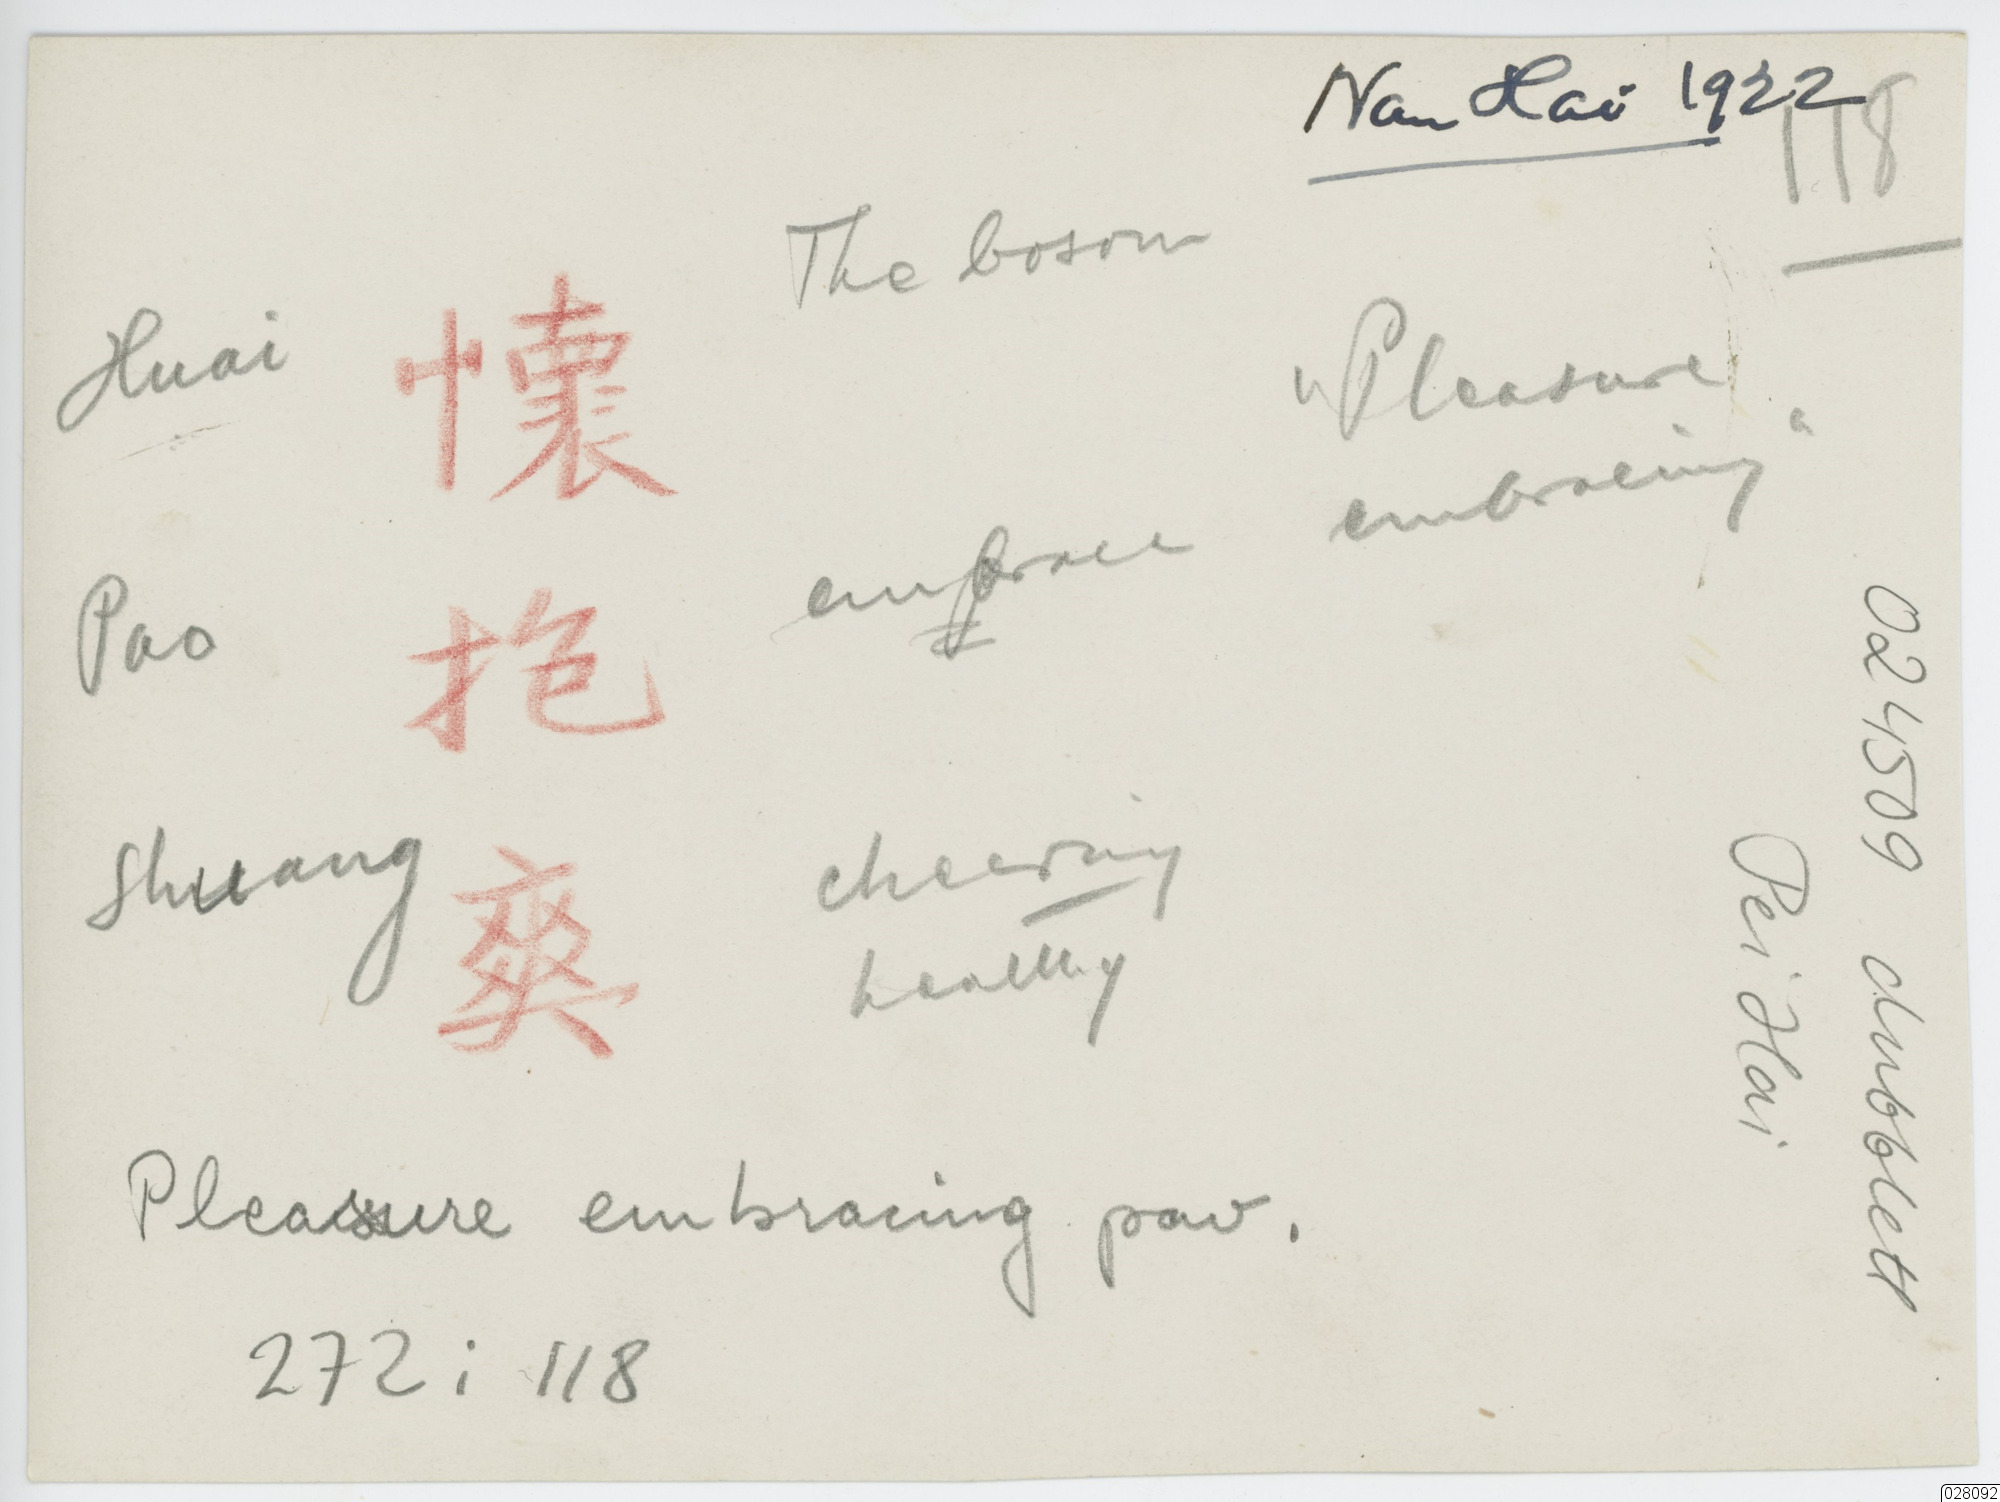 Nan Hai 1922
118
The bosom
Huai 懷
"Pleasure
embracing"
Pao 抱 embrace
Shuang 爽 cheering
healthy
Pleasure embracing pav.
272 i 118
024509 dubblett
Pei Hai
028092